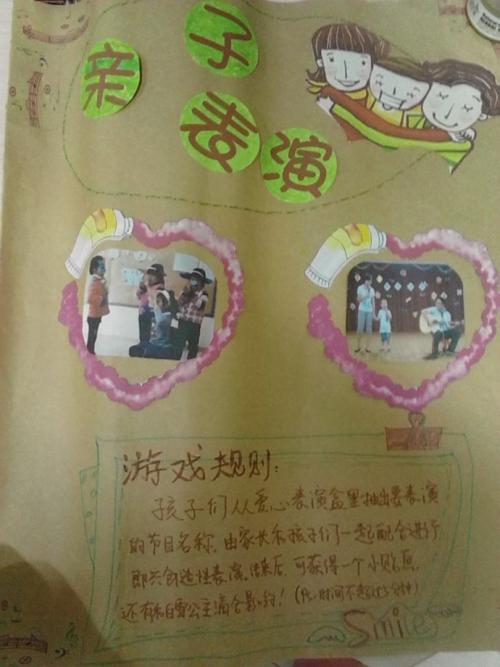 亲子表演
游戏规则:
孩子们从爱心表演盒里抽出要表演
的节目名称,由家长和孩子们一起配合进行
即兴创造性表演,结束后,可获得一个小贴画,
还有和白雪公主滴合影的!(Ps:时间不超过5分钟)
Smile